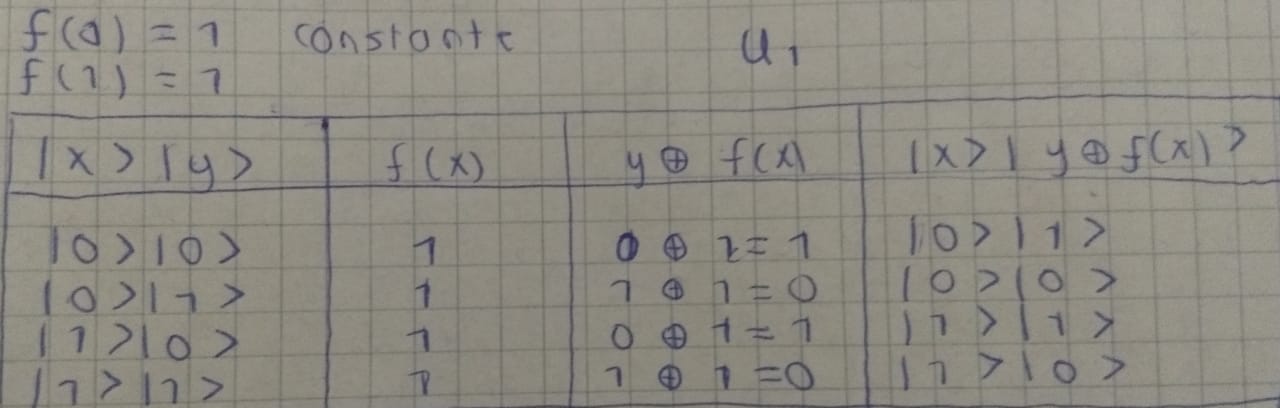 f(0) = 1 constante U₁
f(1) = 1
|x>|y> f(x) y ⊕ f(x) |x>| y ⊕ f(x)>
|0>|0> 1 0 ⊕ 1 = 1 |0>|1>
|0>|1> 1 1 ⊕ 1 = 0 |0>|0>
|1>|0> 1 0 ⊕ 1 = 1 |1>|1>
|1>|1> 1 1 ⊕ 1 = 0 |1>|0>